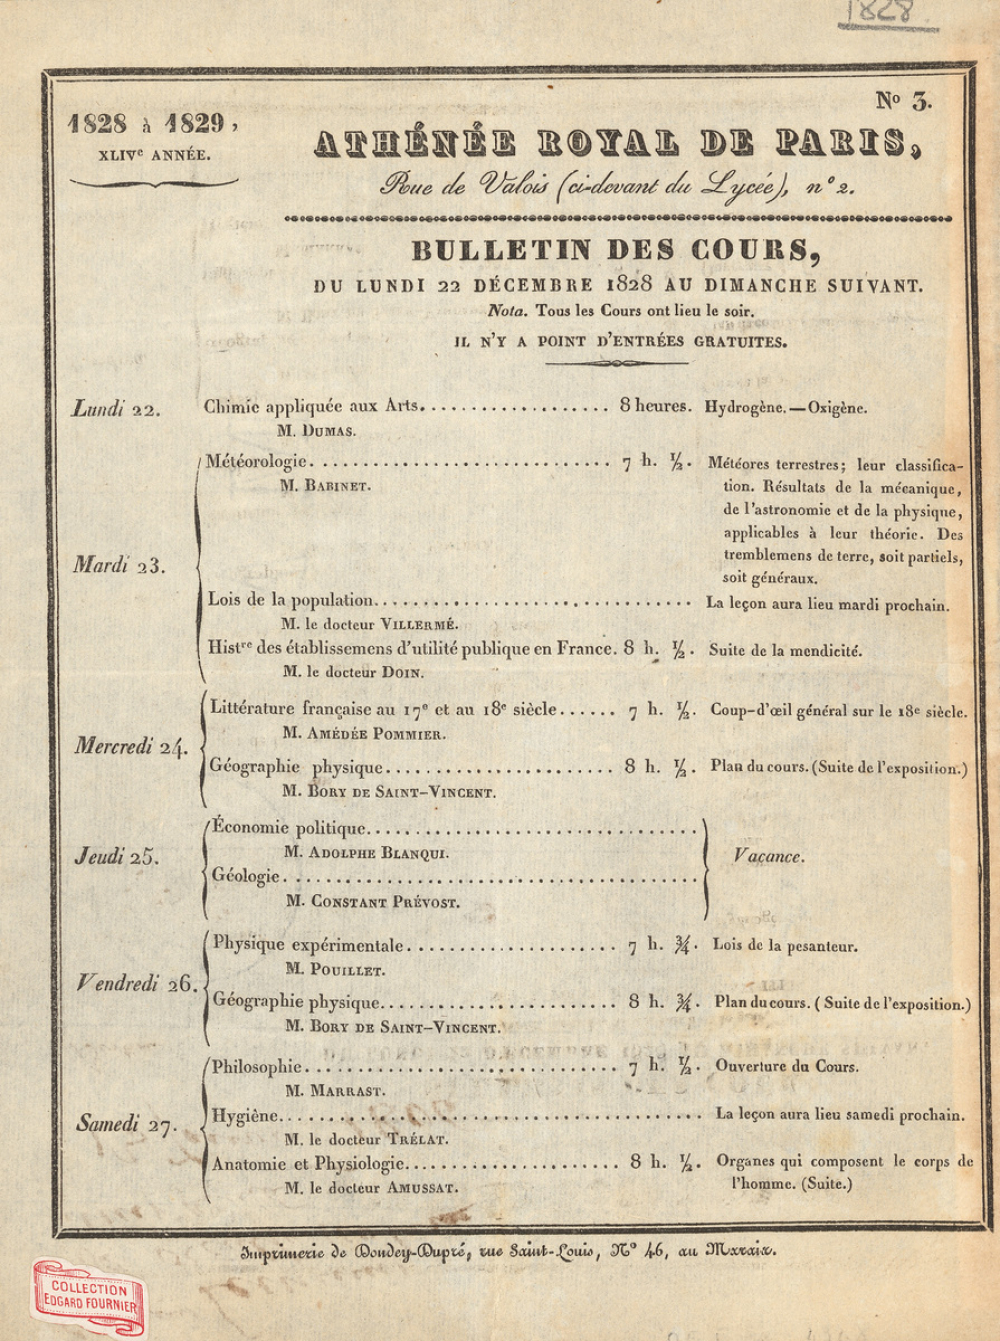 1828
No 3.
1828 à 1829,
XLIVe ANNÉE.
ATHÉNÉE ROYAL DE PARIS,
Rue de Valois (ci-devant du Lycée), no 2.
BULLETIN DES COURS,
DU LUNDI 22 DÉCEMBRE 1828 AU DIMANCHE SUIVANT.
Nota. Tous les Cours ont lieu le soir.
IL N'Y A POINT D'ENTRÉES GRATUITES.
Lundi 22. Chimie appliquée aux Arts. . . . . . . . . . . . . . . . . . . 8 heures. Hydrogène.—Oxigène.
M. DUMAS.
Météorologie. . . . . . . . . . . . . . . . . . . . . . . . . . . . . . 7 h. 1/2. Météores terrestres; leur classifica-
M. BABINET. tion. Résultats de la mécanique,
de l'astronomie et de la physique,
applicables à leur théorie. Des
Mardi 23. tremblemens de terre, soit partiels,
soit généraux.
Lois de la population. . . . . . . . . . . . . . . . . . . . . . . . . . . . . . . La leçon aura lieu mardi prochain.
M. le docteur VILLERMÉ.
Histre des établissemens d'utilité publique en France. 8 h. 1/2. Suite de la mendicité.
M. le docteur DOIN.
Littérature française au 17e et au 18e siècle. . . . . . 7 h. 1/2. Coup-d'œil général sur le 18e siècle.
M. AMÉDÉE POMMIER.
Mercredi 24.
Géographie physique. . . . . . . . . . . . . . . . . . . . . . . 8 h. 1/2. Plan du cours. (Suite de l'exposition.)
M. BORY DE SAINT-VINCENT.
Économie politique. . . . . . . . . . . . . . . . . . . . . . . . . . . . . . . .
M. ADOLPHE BLANQUI.
Jeudi 25. Vacance.
Géologie. . . . . . . . . . . . . . . . . . . . . . . . . . . . . . . . . . . . . . . .
M. CONSTANT PRÉVOST.
Physique expérimentale. . . . . . . . . . . . . . . . . . . . . 7 h. 3/4. Lois de la pesanteur.
M. POUILLET.
Vendredi 26.
Géographie physique. . . . . . . . . . . . . . . . . . . . . . . 8 h. 3/4. Plan du cours. (Suite de l'exposition.)
M. BORY DE SAINT-VINCENT.
Philosophie. . . . . . . . . . . . . . . . . . . . . . . . . . . . . . 7 h. 1/2. Ouverture du Cours.
M. MARRAST.
Hygiène. . . . . . . . . . . . . . . . . . . . . . . . . . . . . . . . . . . . . . . . . La leçon aura lieu samedi prochain.
Samedi 27.
M. le docteur TRÉLAT.
Anatomie et Physiologie. . . . . . . . . . . . . . . . . . . . . 8 h. 1/2. Organes qui composent le corps de
M. le docteur AMUSSAT. l'homme. (Suite.)
Imprimerie de Dondey-Dupré, rue Saint-Louis, No 46, au Marais.
COLLECTION
EDGARD FOURNIER